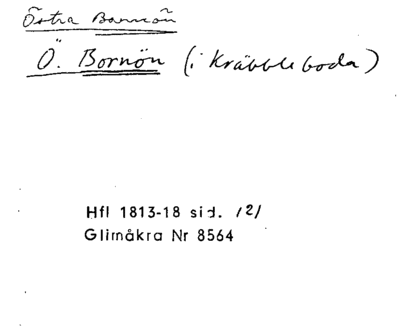 Östra Bornön
Ö. Bornön (i Kräbbleboda)
Hfl 1813-18 sid. 121
Glimåkra Nr 8564